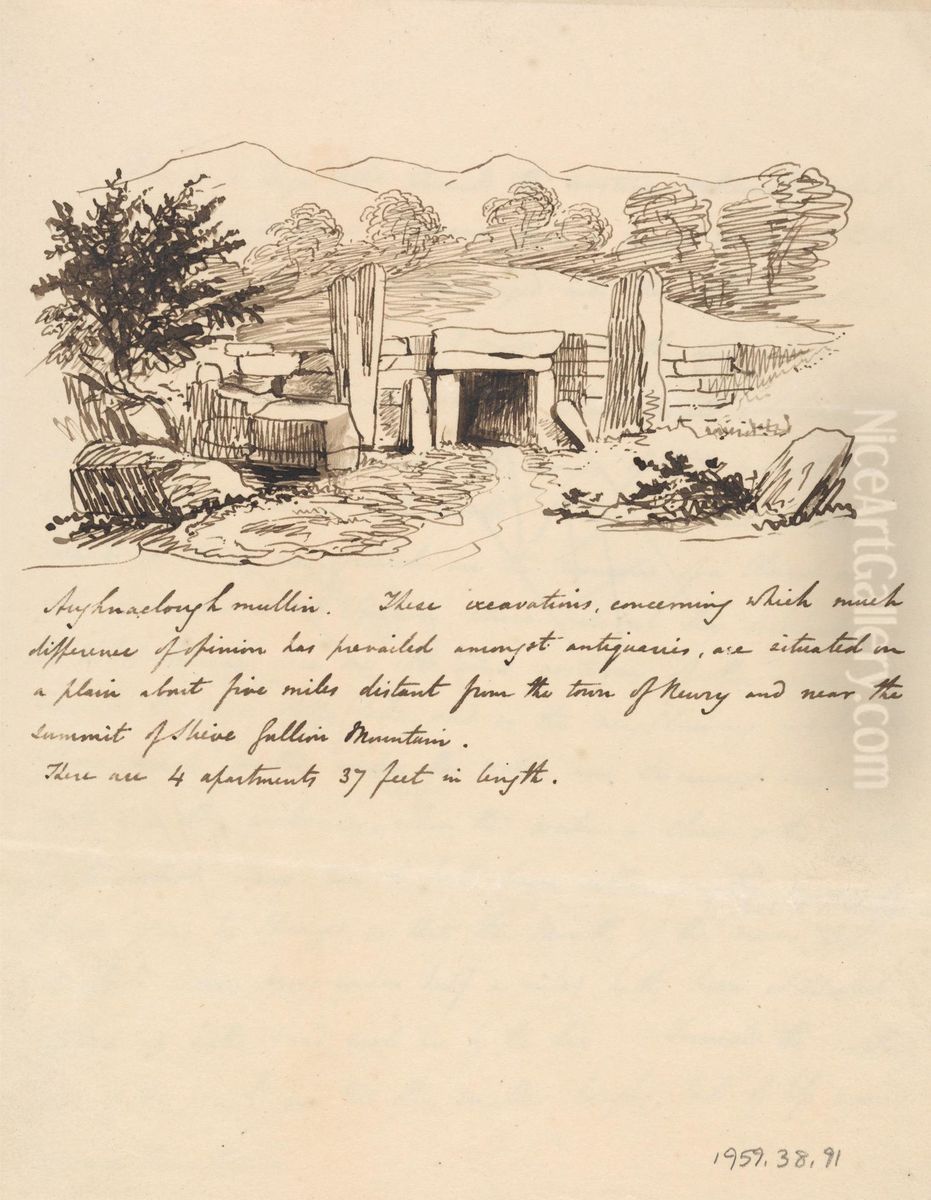 Aughnaclough mullin. These excavations, concerning which much
difference of opinion has prevailed amongst antiquaries, are situated on
a plain about five miles distant from the town of Newry and near the
summit of Slieve Gullion Mountain.
There are 4 apartments 37 feet in length.
1959.38.91
NiceArtGallery.com